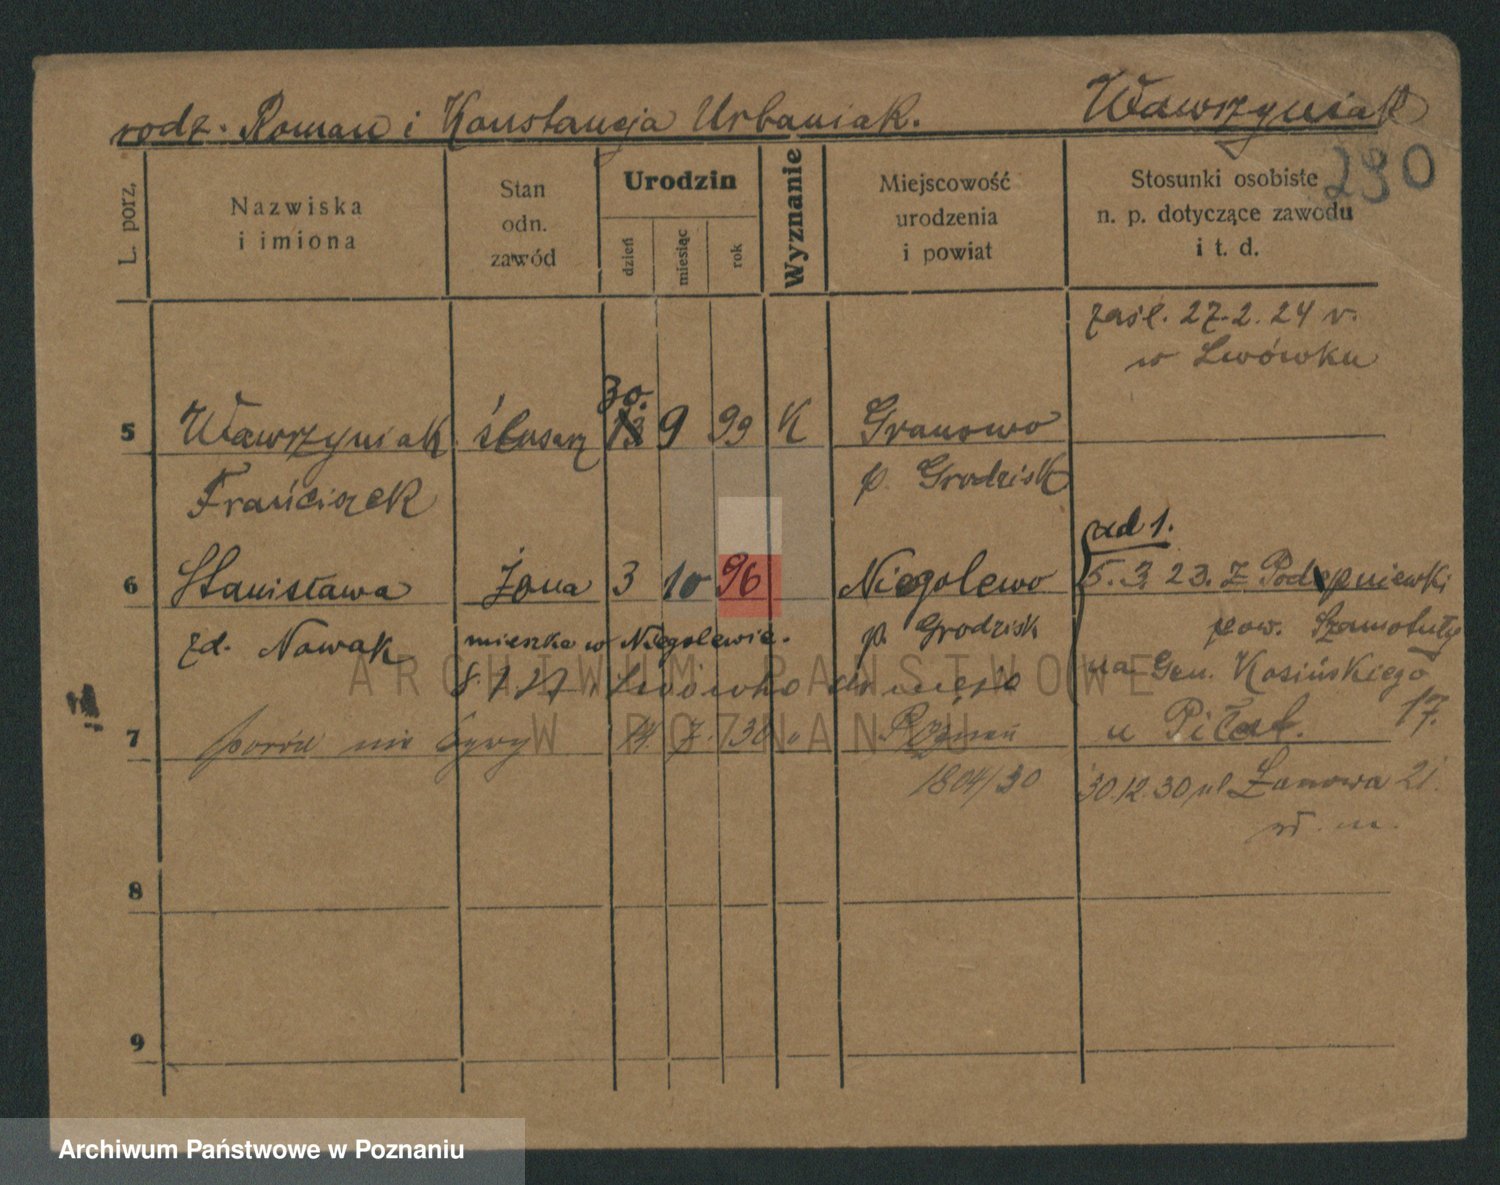 rodz. Roman i Konstancja Urbaniak. Wawrzyniak
230
L. porz.
Nazwiska i imiona
Stan odn. zawód
Urodzin
dzień
miesiąc
rok
Wyznanie
Miejscowość urodzenia i powiat
Stosunki osobiste n. p. dotyczące zawodu i t. d.
zaśl. 27.2.24 r.
w Lwówku
30.
5 Wawrzyniak ślusarz 13 9 99 K Granowo
Franciszek p. Grodzisk
ad 1.
6 Stanisława żona 3 10 96 Niegolewo 5. 3. 23. z Podpniewki
zd. Nowak mieszka w Niegolewie. p. Grodzisk pow. Szamotuły
8.1 27 Lwówka do męża na Gen. Kosińskiego
17.
7 poród nie żywy 14. 7. 30. Poznań u Pilat.
1804/30 30.12.30 ul Łanowa 21.
wł. m.
8
9
ARCHIWUM PAŃSTWOWE
W POZNANIU
Archiwum Państwowe w Poznaniu